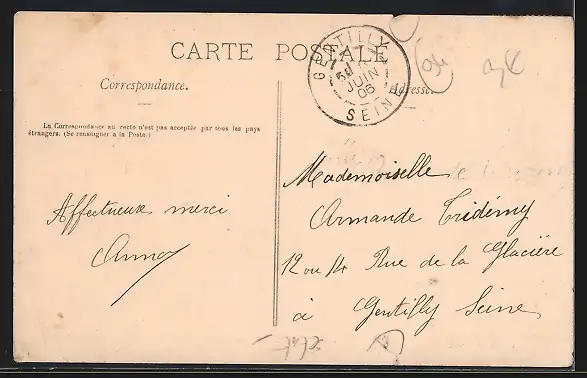 CARTE POSTALE
Correspondance.
Adresse.
La Correspondance au recto n'est pas acceptée par tous les pays
étrangers. (Se renseigner à la Poste.)
GENTILLY
JUIN
06
SEINE
Affectueux merci
Anna
Mademoiselle
Armande Tridémy
12 ou 14 Rue de la Glacière
à Gentilly Seine